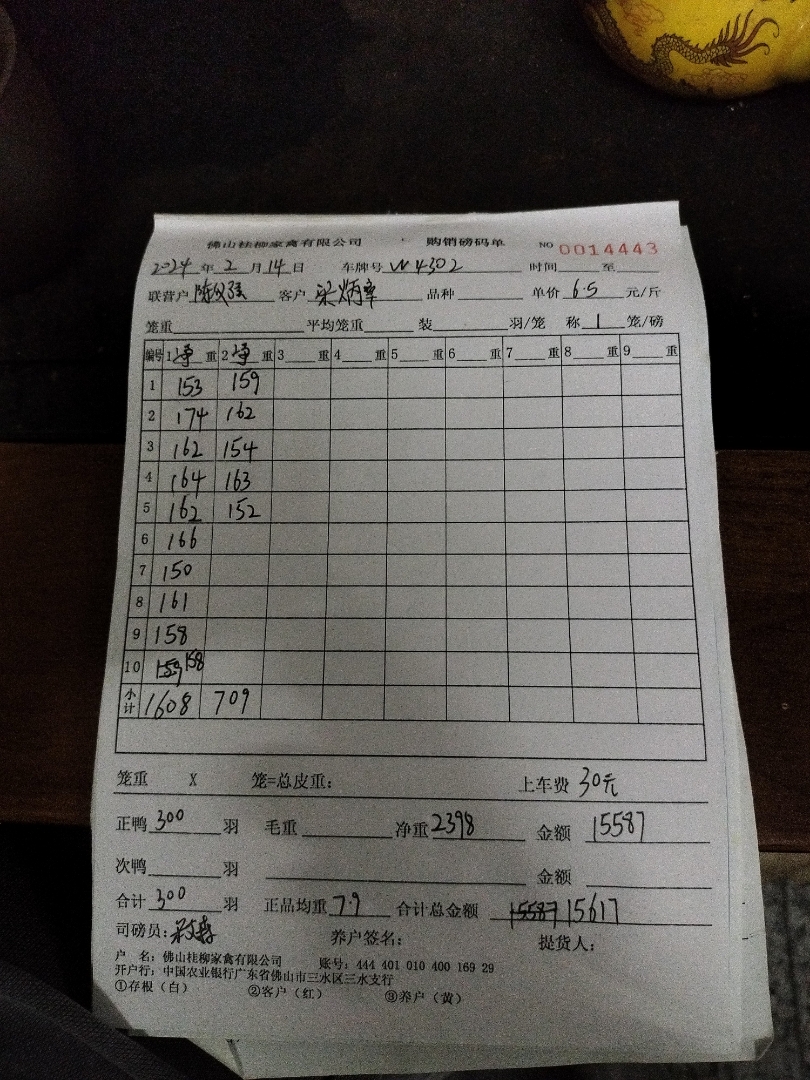 佛山桂柳家禽有限公司 购销磅码单 NO 0014443
2024年2月14日 车牌号 W4302 时间 至
联营户 陈 客户 梁炳 品种 单价 6.5 元/斤
笼重 平均笼重 装 羽/笼 称 1 笼/磅
编号 1净重 2净重 3 重 4 重 5 重 6 重 7 重 8 重 9 重
1 153 159
2 174 162
3 162 154
4 164 163
5 162 152
6 166
7 150
8 161
9 158
10 159 158
小计 1608 709
笼重 X 笼=总皮重: 上车费 30元
正鸭 300 羽 毛重 净重 2398 金额 15587
次鸭 羽 金额
合计 300 羽 正品均重 7.9 合计总金额 15587 15617
司磅员: 养户签名: 提货人:
户 名: 佛山桂柳家禽有限公司 账号: 444 401 010 400 169 29
开户行: 中国农业银行广东省佛山市三水区三水支行
①存根(白) ②客户(红) ③养户(黄)